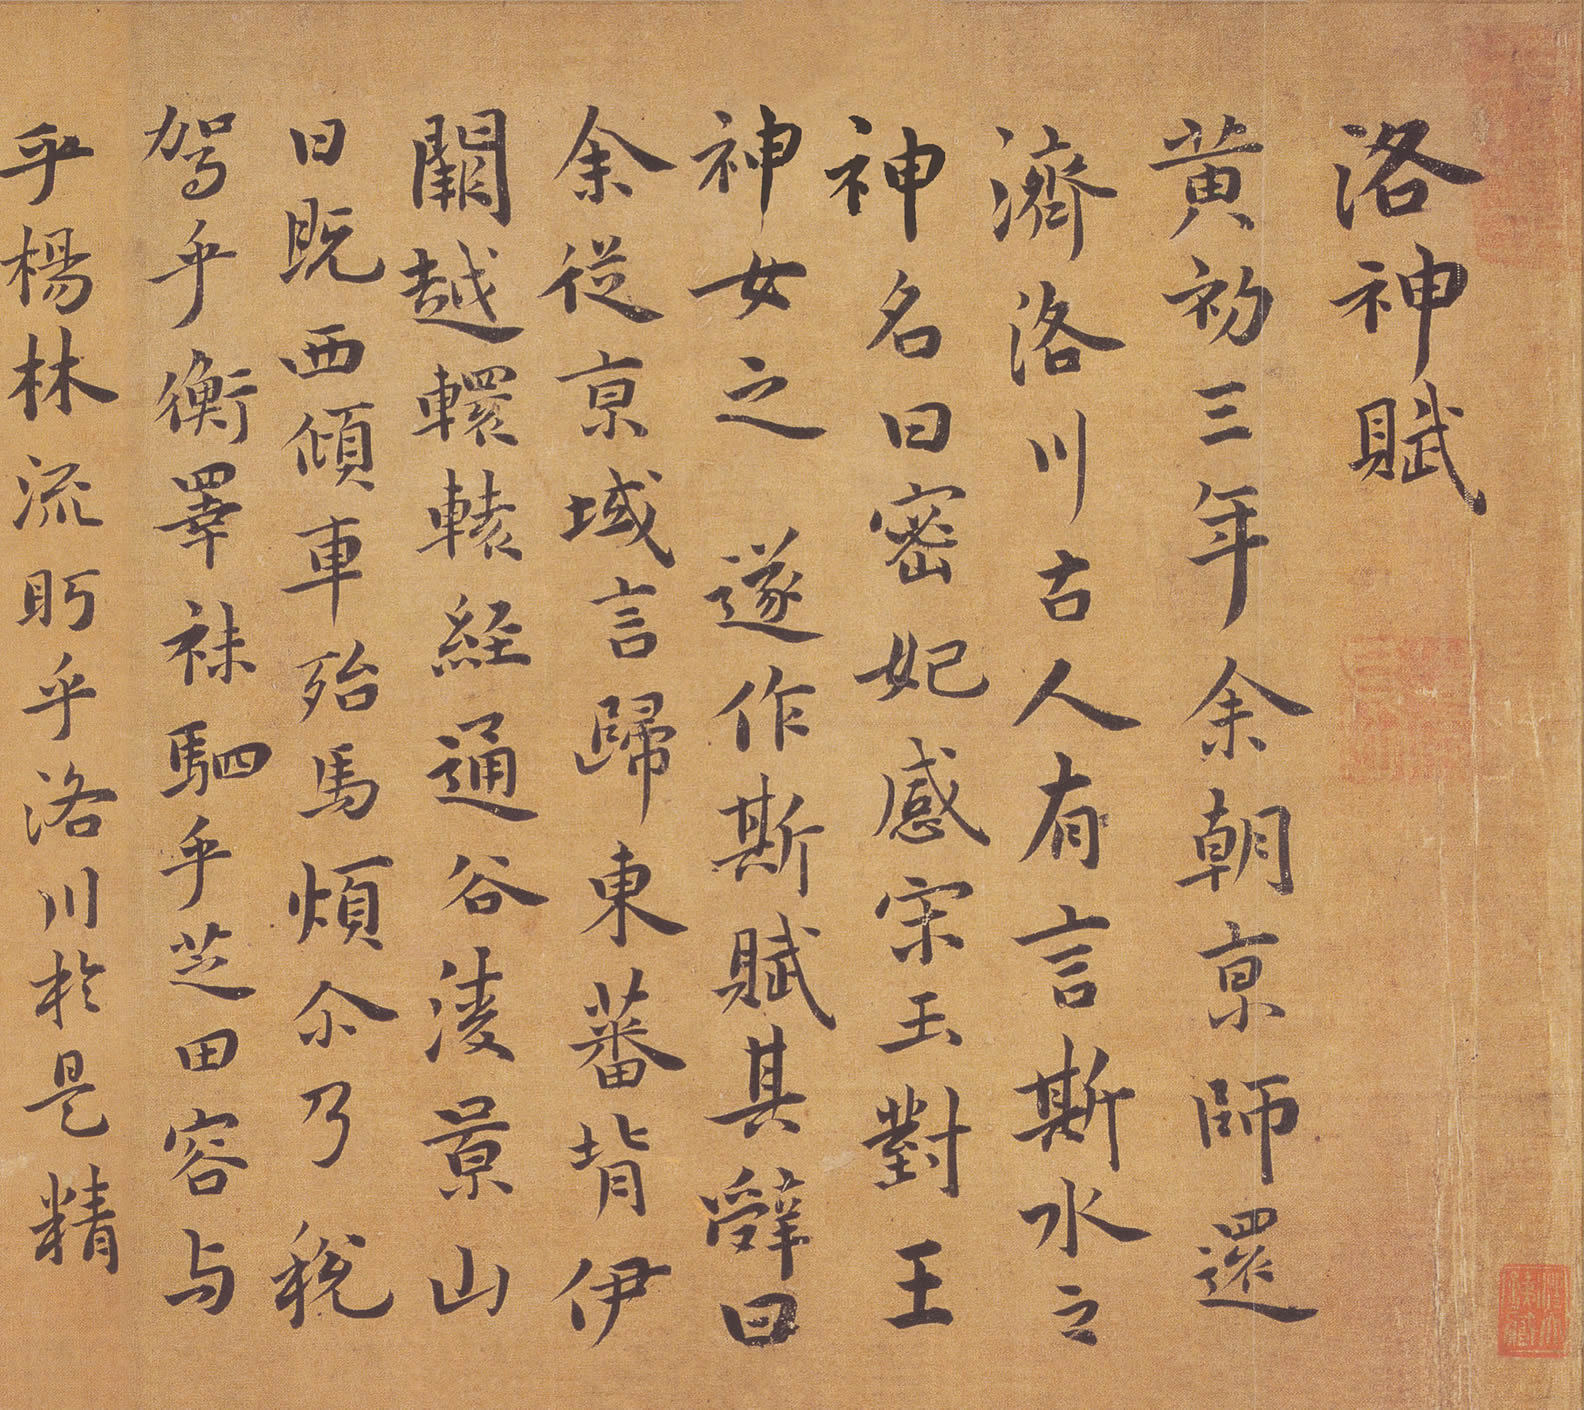 洛神賦
黄初三年余朝京師還
濟洛川古人有言斯水之
神名曰密妃感宋玉對王
神女之遂作斯賦其辤曰
余従京域言歸東蕃背伊
闕越轘轅経通谷淩景山
日既西傾車殆馬煩尒乃税
駕乎衡睪袜駟乎芝田容与
乎楊林流眄乎洛川於是精